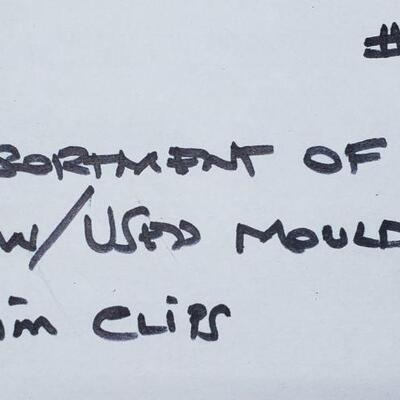 #
SORTMENT OF
W/USED MOULD
im CLIPS